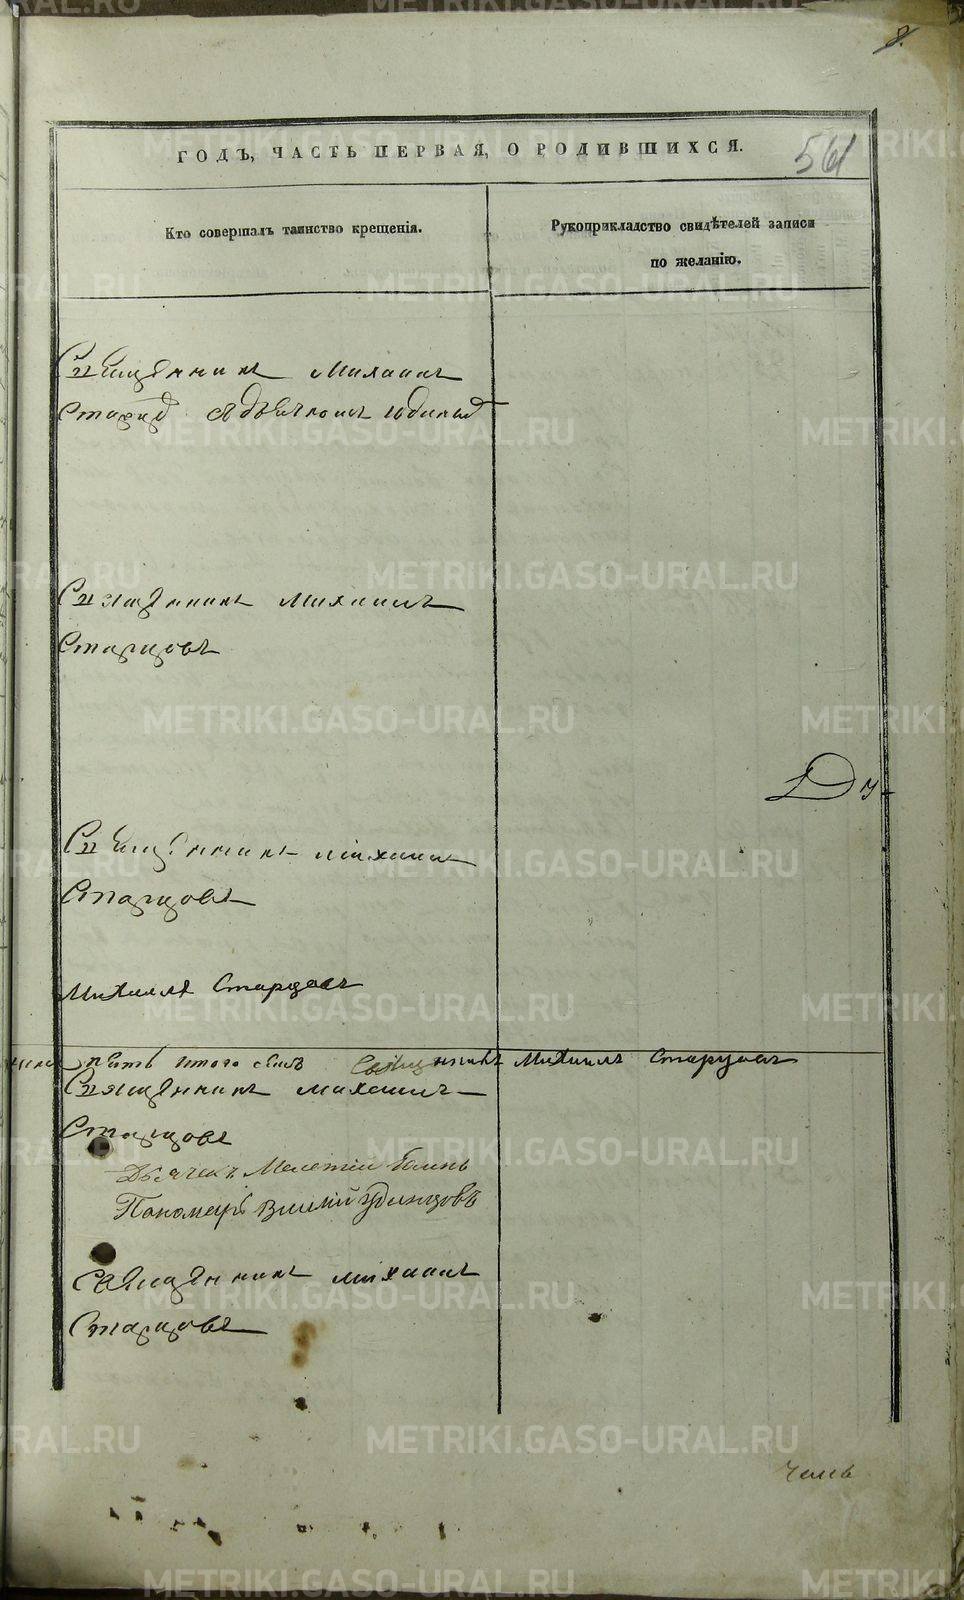 8.
ГОДЪ, ЧАСТЬ ПЕРВАЯ, О РОДИВШИХСЯ.
561
Кто совершалъ таинство крещенія.
Рукоприкладство свидѣтелей записи
по желанію.
Священникъ Михаилъ
Священникъ Михаилъ
Старцовъ
Ду-
Священникъ Михаилъ
Старцовъ
Михаилъ Старцовъ
пять итого Священникъ Михаилъ Старцовъ
Священникъ Михаилъ
Старцовъ
Дьячекъ Мелетій
Пономарь Удинцовъ
Священникъ Михаилъ
Старцовъ
METRIKI.GASO-URAL.RU